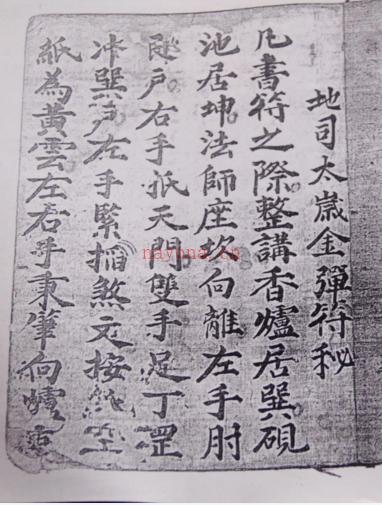 地司太歲金彈符秘
凡書符之際整講香爐居巽硯
池居坤法師座坎向離左手肘
户右手抵天門雙手足丁罡
冲巽户左手緊搯煞文按
紙為黃雲左右手秉筆向爐
nayona.cn